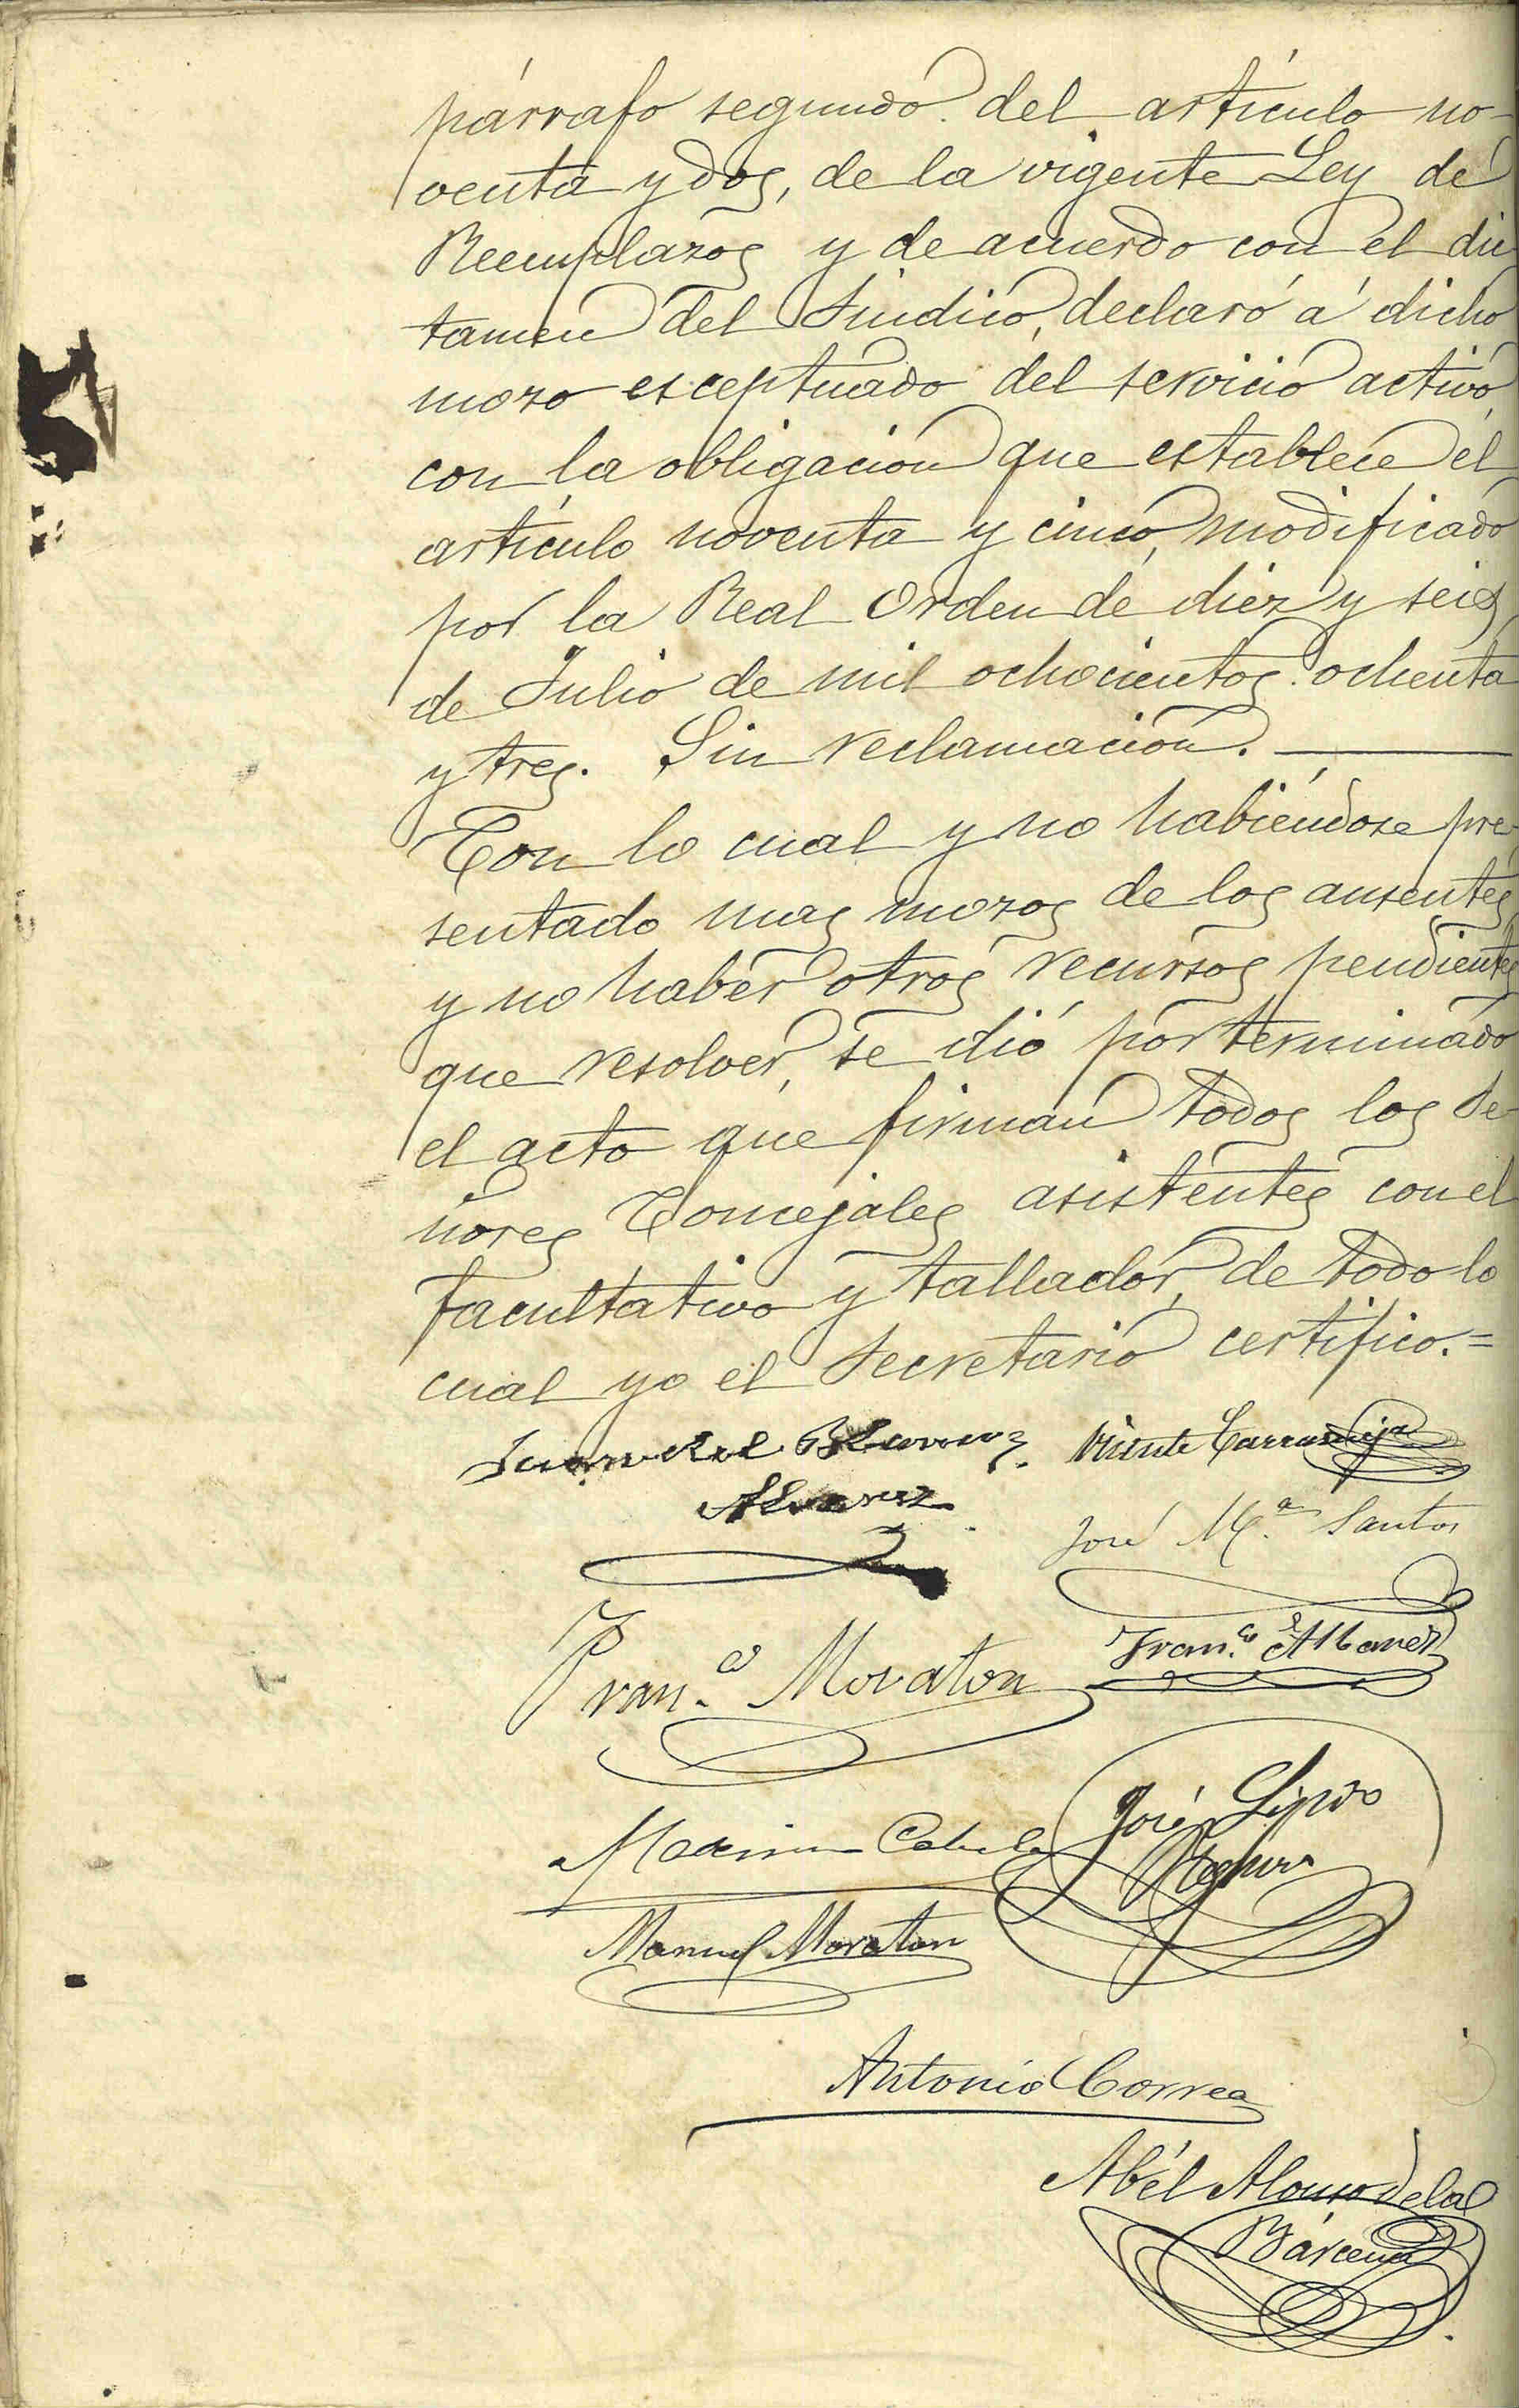 párrafo segundo del artículo no-
venta y dos, de la vigente Ley de
Reemplazos y de acuerdo con el dic
tamen del Síndico, declaró á dicho
mozo esceptuado del servicio activo,
con la obligación que establece el
artículo noventa y cinco, modificado
por la Real Orden de diez y seis
de Julio de mil ochocientos ochenta
y tres. Sin reclamación.
Con lo cual y no habiéndose pre-
sentado mas mozos de los ausentes
y no haber otros recursos pendientes
que resolver, se dió por terminado
el acto que firman todos los Se-
ñores Concejales asistentes con el
facultativo y tallador, de todo lo
cual yo el Secretario certifico.=
Juan del
Vicente
Alvarez
José M.ª Santos
Fran.co Moraton
Fran.co
José
Manuel Moraton
Antonio Correa
Abél Alonso de la
Bárcena